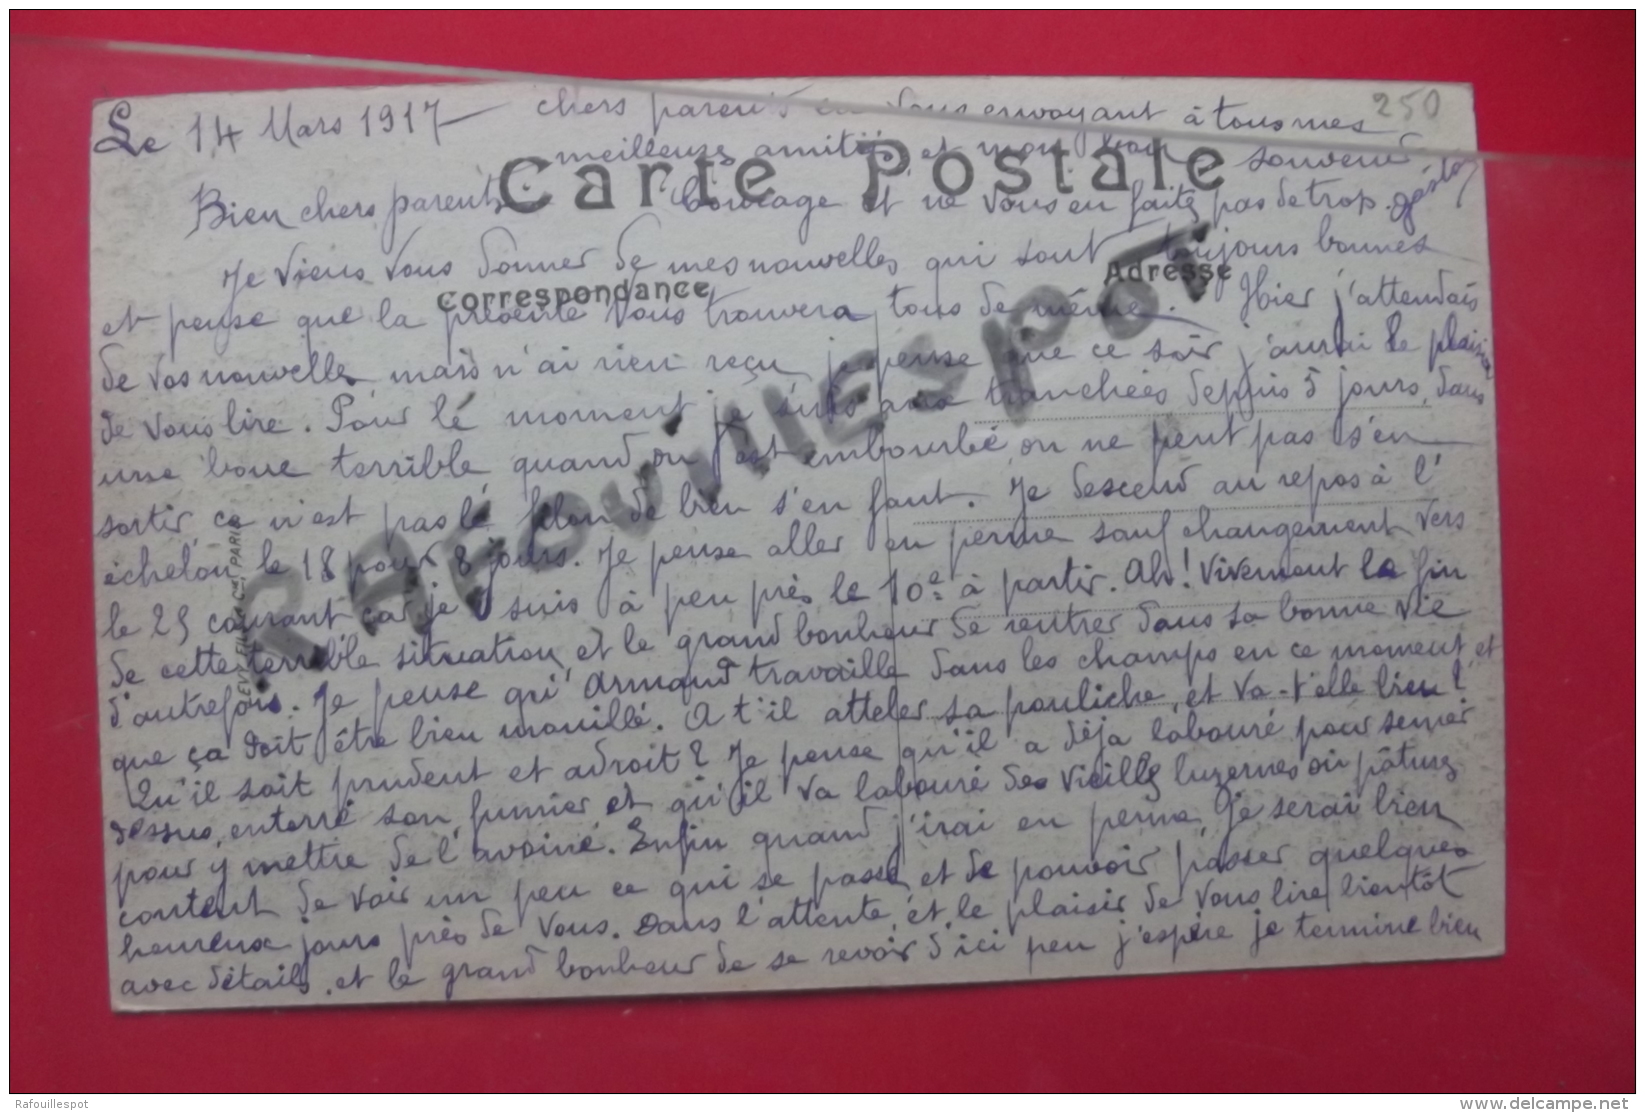 Le 14 Mars 1917
chers parents en vous envoyant à tous mes
250
meilleures amitiés et mon bon souvenir
Carte Postale
Bien chers parents,
Courage et ne vous en faites pas de trop. Gaston
Je viens vous donner de mes nouvelles qui sont toujours bonnes
Correspondance
Adresse
et pense que la présente vous trouvera tous de même. Hier j'attendais
de vos nouvelles mais n'ai rien reçu, je pense que ce soir j'aurai le plaisir
de vous lire. Pour lé moment je suis aux tranchées depuis 5 jours, dans
une boue terrible quand on s'est embourbé on ne peut pas s'en
sortir, ce n'est pas lé filon de bien s'en faut. Je descend au repos à l'
échelon le 18 pour 8 jours. Je pense aller en perme sauf changement vers
le 25 courant car je suis à peu près le 10e à partir. Ah! Vivement la fin
de cette terrible situation, et le grand bonheur de rentrer dans sa bonne vie
d'autrefois. Je pense qu'Armand travaille dans les champs en ce moment, et
que ça doit être bien mouillé. A t'il atteler sa pouliche, et va-t'elle bien?
Qu'il soit prudent et adroit? Je pense qu'il a déja labouré pour semer
dessus, enterré son fumier et qu'il va labouré des vieilles luzernes ou pâtures
pour y mettre de l'avoine. Enfin quand j'irai en perme, je serai bien
content de voir un peu ce qui se passe, et de pouvoir passer quelques
heureux jours près de vous. Dans l'attente, et le plaisir de vous lire bientôt
avec détails, et le grand bonheur de se revoir d'ici peu j'espère je termine bien
RAFOUILLESPOT
Rafouillespot
www.delcampe.net